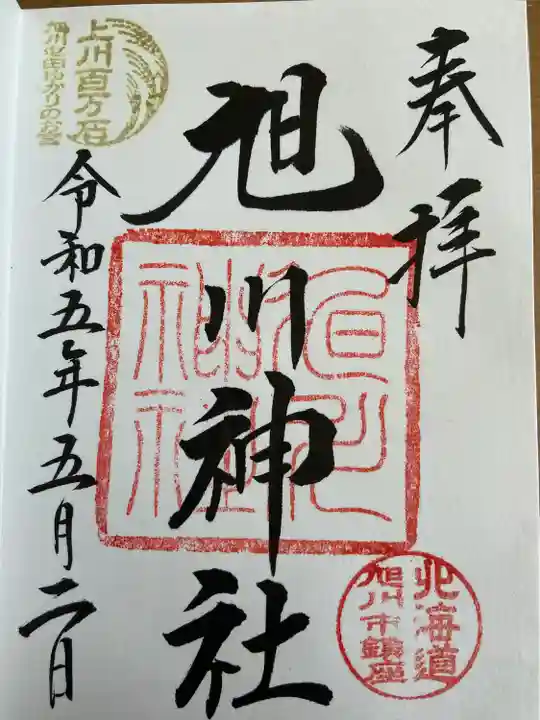 奉拝
旭川神社
令和五年五月二日
上川百万石
北海道
旭川市鎮座